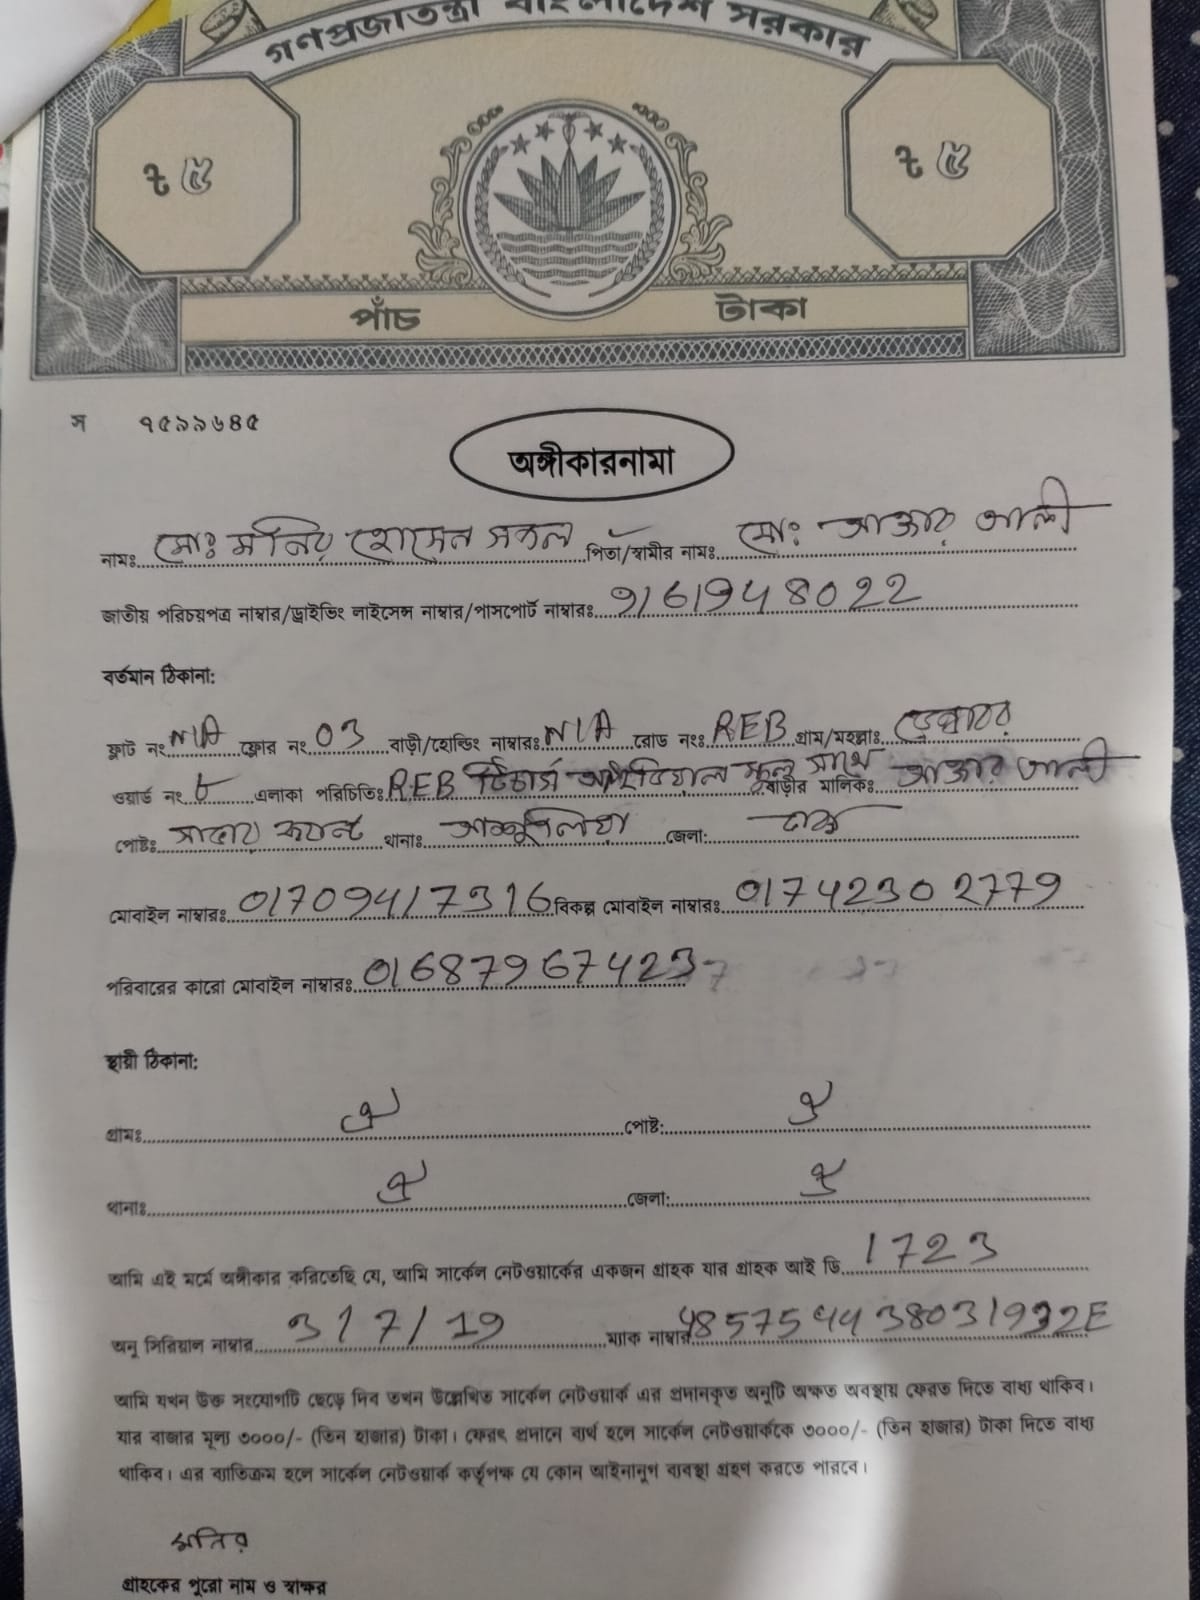 গণপ্রজাতন্ত্রী বাংলাদেশ সরকার
৳ ৫ ৳ ৫
পাঁচ টাকা
স ৭৫৯৯৬৪৫
অঙ্গীকারনামা
নামঃ মোঃ মনির হোসেন সকল পিতা/স্বামীর নামঃ মোঃ আক্তার আলী
জাতীয় পরিচয়পত্র নাম্বার/ড্রাইভিং লাইসেন্স নাম্বার/পাসপোর্ট নাম্বারঃ 9161948022
বর্তমান ঠিকানা:
ফ্লাট নং N/A ফ্লোর নং 03 বাড়ী/হোল্ডিং নাম্বারঃ N/A রোড নংঃ REB গ্রাম/মহল্লাঃ
ওয়ার্ড নং ৮ এলাকা পরিচিতিঃ REB স্কুল সাথে বাড়ীর মালিকঃ আক্তার আলী
পোষ্টঃ থানাঃ আশুলিয়া জেলা: ঢাকা
মোবাইল নাম্বারঃ 01709417316 বিকল্প মোবাইল নাম্বারঃ 01742302779
পরিবারের কারো মোবাইল নাম্বারঃ 01687967423
স্থায়ী ঠিকানা:
গ্রামঃ ঐ পোষ্ট: ঐ
থানাঃ ঐ জেলা: ঐ
আমি এই মর্মে অঙ্গীকার করিতেছি যে, আমি সার্কেল নেটওয়ার্কের একজন গ্রাহক যার গ্রাহক আই ডি 1723
অনু সিরিয়াল নাম্বার 317/19 ম্যাক নাম্বার 485754438031932E
আমি যখন উক্ত সংযোগটি ছেড়ে দিব তখন উল্লেখিত সার্কেল নেটওয়ার্ক এর প্রদানকৃত অনুটি অক্ষত অবস্থায় ফেরত দিতে বাধ্য থাকিব।
যার বাজার মূল্য ৩০০০/- (তিন হাজার) টাকা। ফেরৎ প্রদানে ব্যর্থ হলে সার্কেল নেটওয়ার্ককে ৩০০০/- (তিন হাজার) টাকা দিতে বাধ্য
থাকিব। এর ব্যতিক্রম হলে সার্কেল নেটওয়ার্ক কর্তৃপক্ষ যে কোন আইনানুগ ব্যবস্থা গ্রহণ করতে পারবে।
মনির
গ্রাহকের পুরো নাম ও স্বাক্ষর